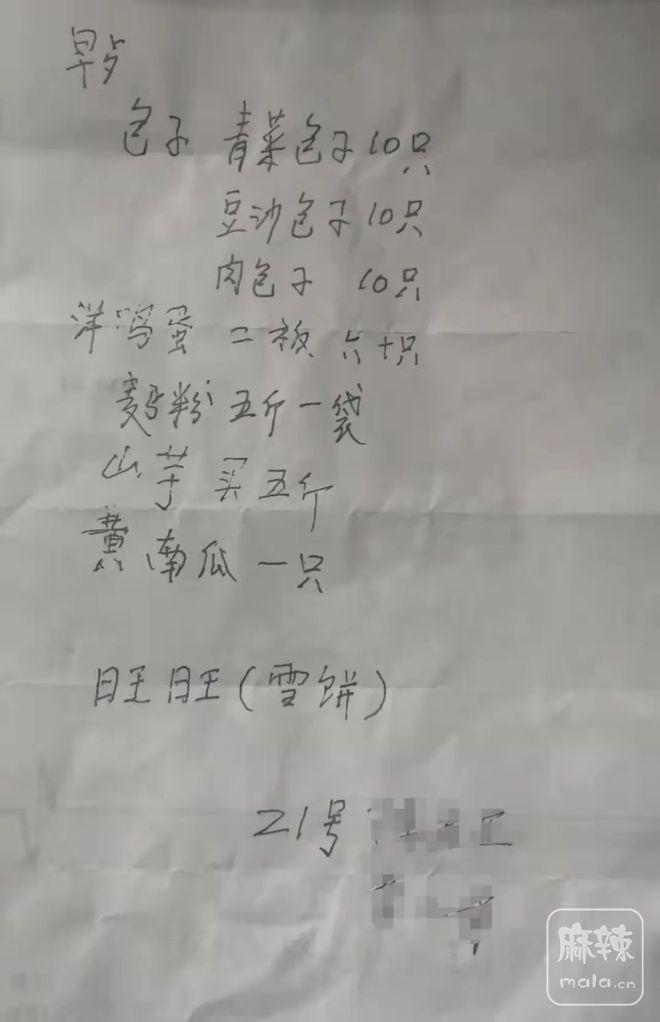 早
包子 青菜包子10只
豆沙包子10只
肉包子 10只
洋鸡蛋 二板 六十只
麫粉 五斤一袋
山芋 买五斤
黄南瓜一只
旺旺(雪饼)
21号
麻辣
mala.cn